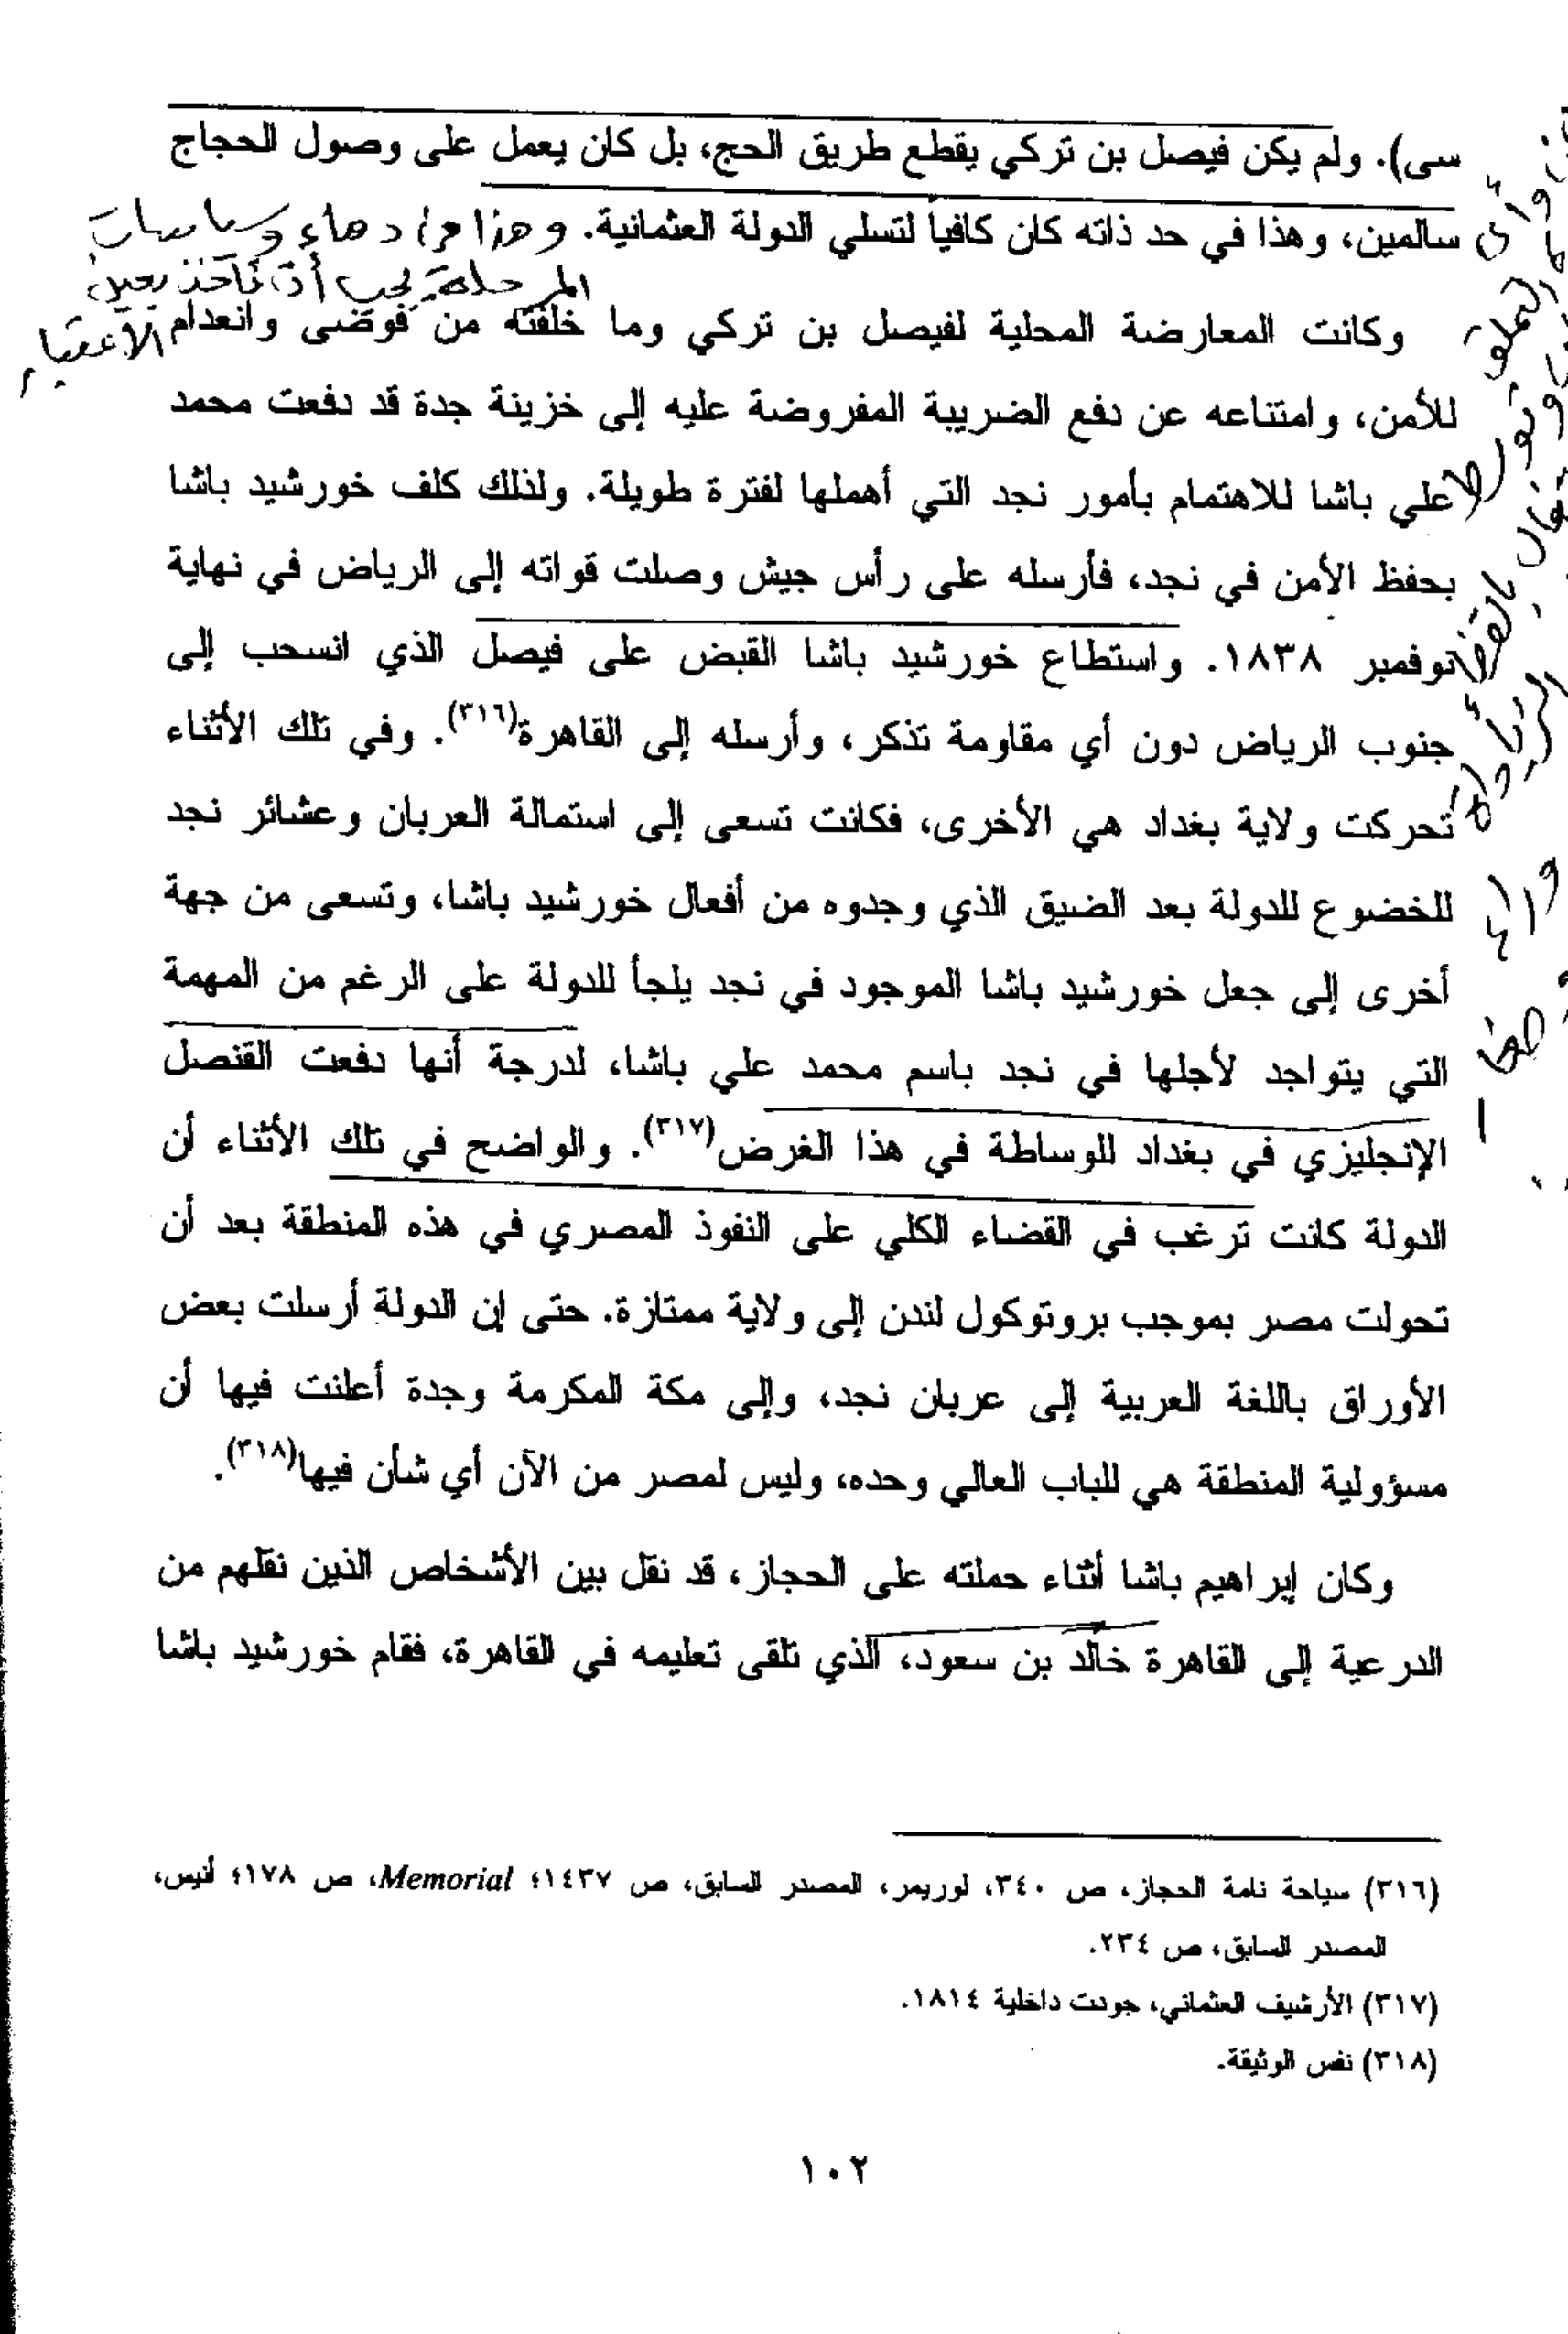 سى). ولم يكن فيصل بن تركي يقطع طريق الحج، بل كان يعمل على وصول الحجاج
سالمين، وهذا في حد ذاته كان كافياً لتسلي الدولة العثمانية. وهذا من دهاء وسياسات
المرحلة يجب أن تأخذ بعين
الاعتبار
وكانت المعارضة المحلية لفيصل بن تركي وما خلفته من فوضى وانعدام
للأمن، وامتناعه عن دفع الضريبة المفروضة عليه إلى خزينة جدة قد دفعت محمد
علي باشا للاهتمام بأمور نجد التي أهملها لفترة طويلة. ولذلك كلف خورشيد باشا
بحفظ الأمن في نجد، فأرسله على رأس جيش وصلت قواته إلى الرياض في نهاية
نوفمبر ١٨٣٨. واستطاع خورشيد باشا القبض على فيصل الذي انسحب إلى
جنوب الرياض دون أي مقاومة تذكر، وأرسله إلى القاهرة(٣١٦). وفي تلك الأثناء
تحركت ولاية بغداد هي الأخرى، فكانت تسعى إلى استمالة العربان وعشائر نجد
للخضوع للدولة بعد الضيق الذي وجدوه من أفعال خورشيد باشا، وتسعى من جهة
أخرى إلى جعل خورشيد باشا الموجود في نجد يلجأ للدولة على الرغم من المهمة
التي يتواجد لأجلها في نجد باسم محمد علي باشا، لدرجة أنها دفعت القنصل
الإنجليزي في بغداد للوساطة في هذا الغرض(٣١٧). والواضح في تلك الأثناء أن
الدولة كانت ترغب في القضاء الكلي على النفوذ المصري في هذه المنطقة بعد أن
تحولت مصر بموجب بروتوكول لندن إلى ولاية ممتازة. حتى إن الدولة أرسلت بعض
الأوراق باللغة العربية إلى عربان نجد، وإلى مكة المكرمة وجدة أعلنت فيها أن
مسؤولية المنطقة هي للباب العالي وحده، وليس لمصر من الآن أي شأن فيها(٣١٨).
وكان إبراهيم باشا أثناء حملته على الحجاز، قد نقل بين الأشخاص الذين نقلهم من
الدرعية إلى القاهرة خالد بن سعود، الذي تلقى تعليمه في القاهرة، فقام خورشيد باشا
(٣١٦) سياحة نامة الحجاز، ص ٣٤٠، لوريمر، المصدر السابق، ص ١٤٣٧؛ Memorial، ص ١٧٨؛ أنيس،
المصدر السابق، ص ٢٣٤.
(٣١٧) الأرشيف العثماني، جودت داخلية ١٨١٤.
(٣١٨) نفس الوثيقة.
١٠٢